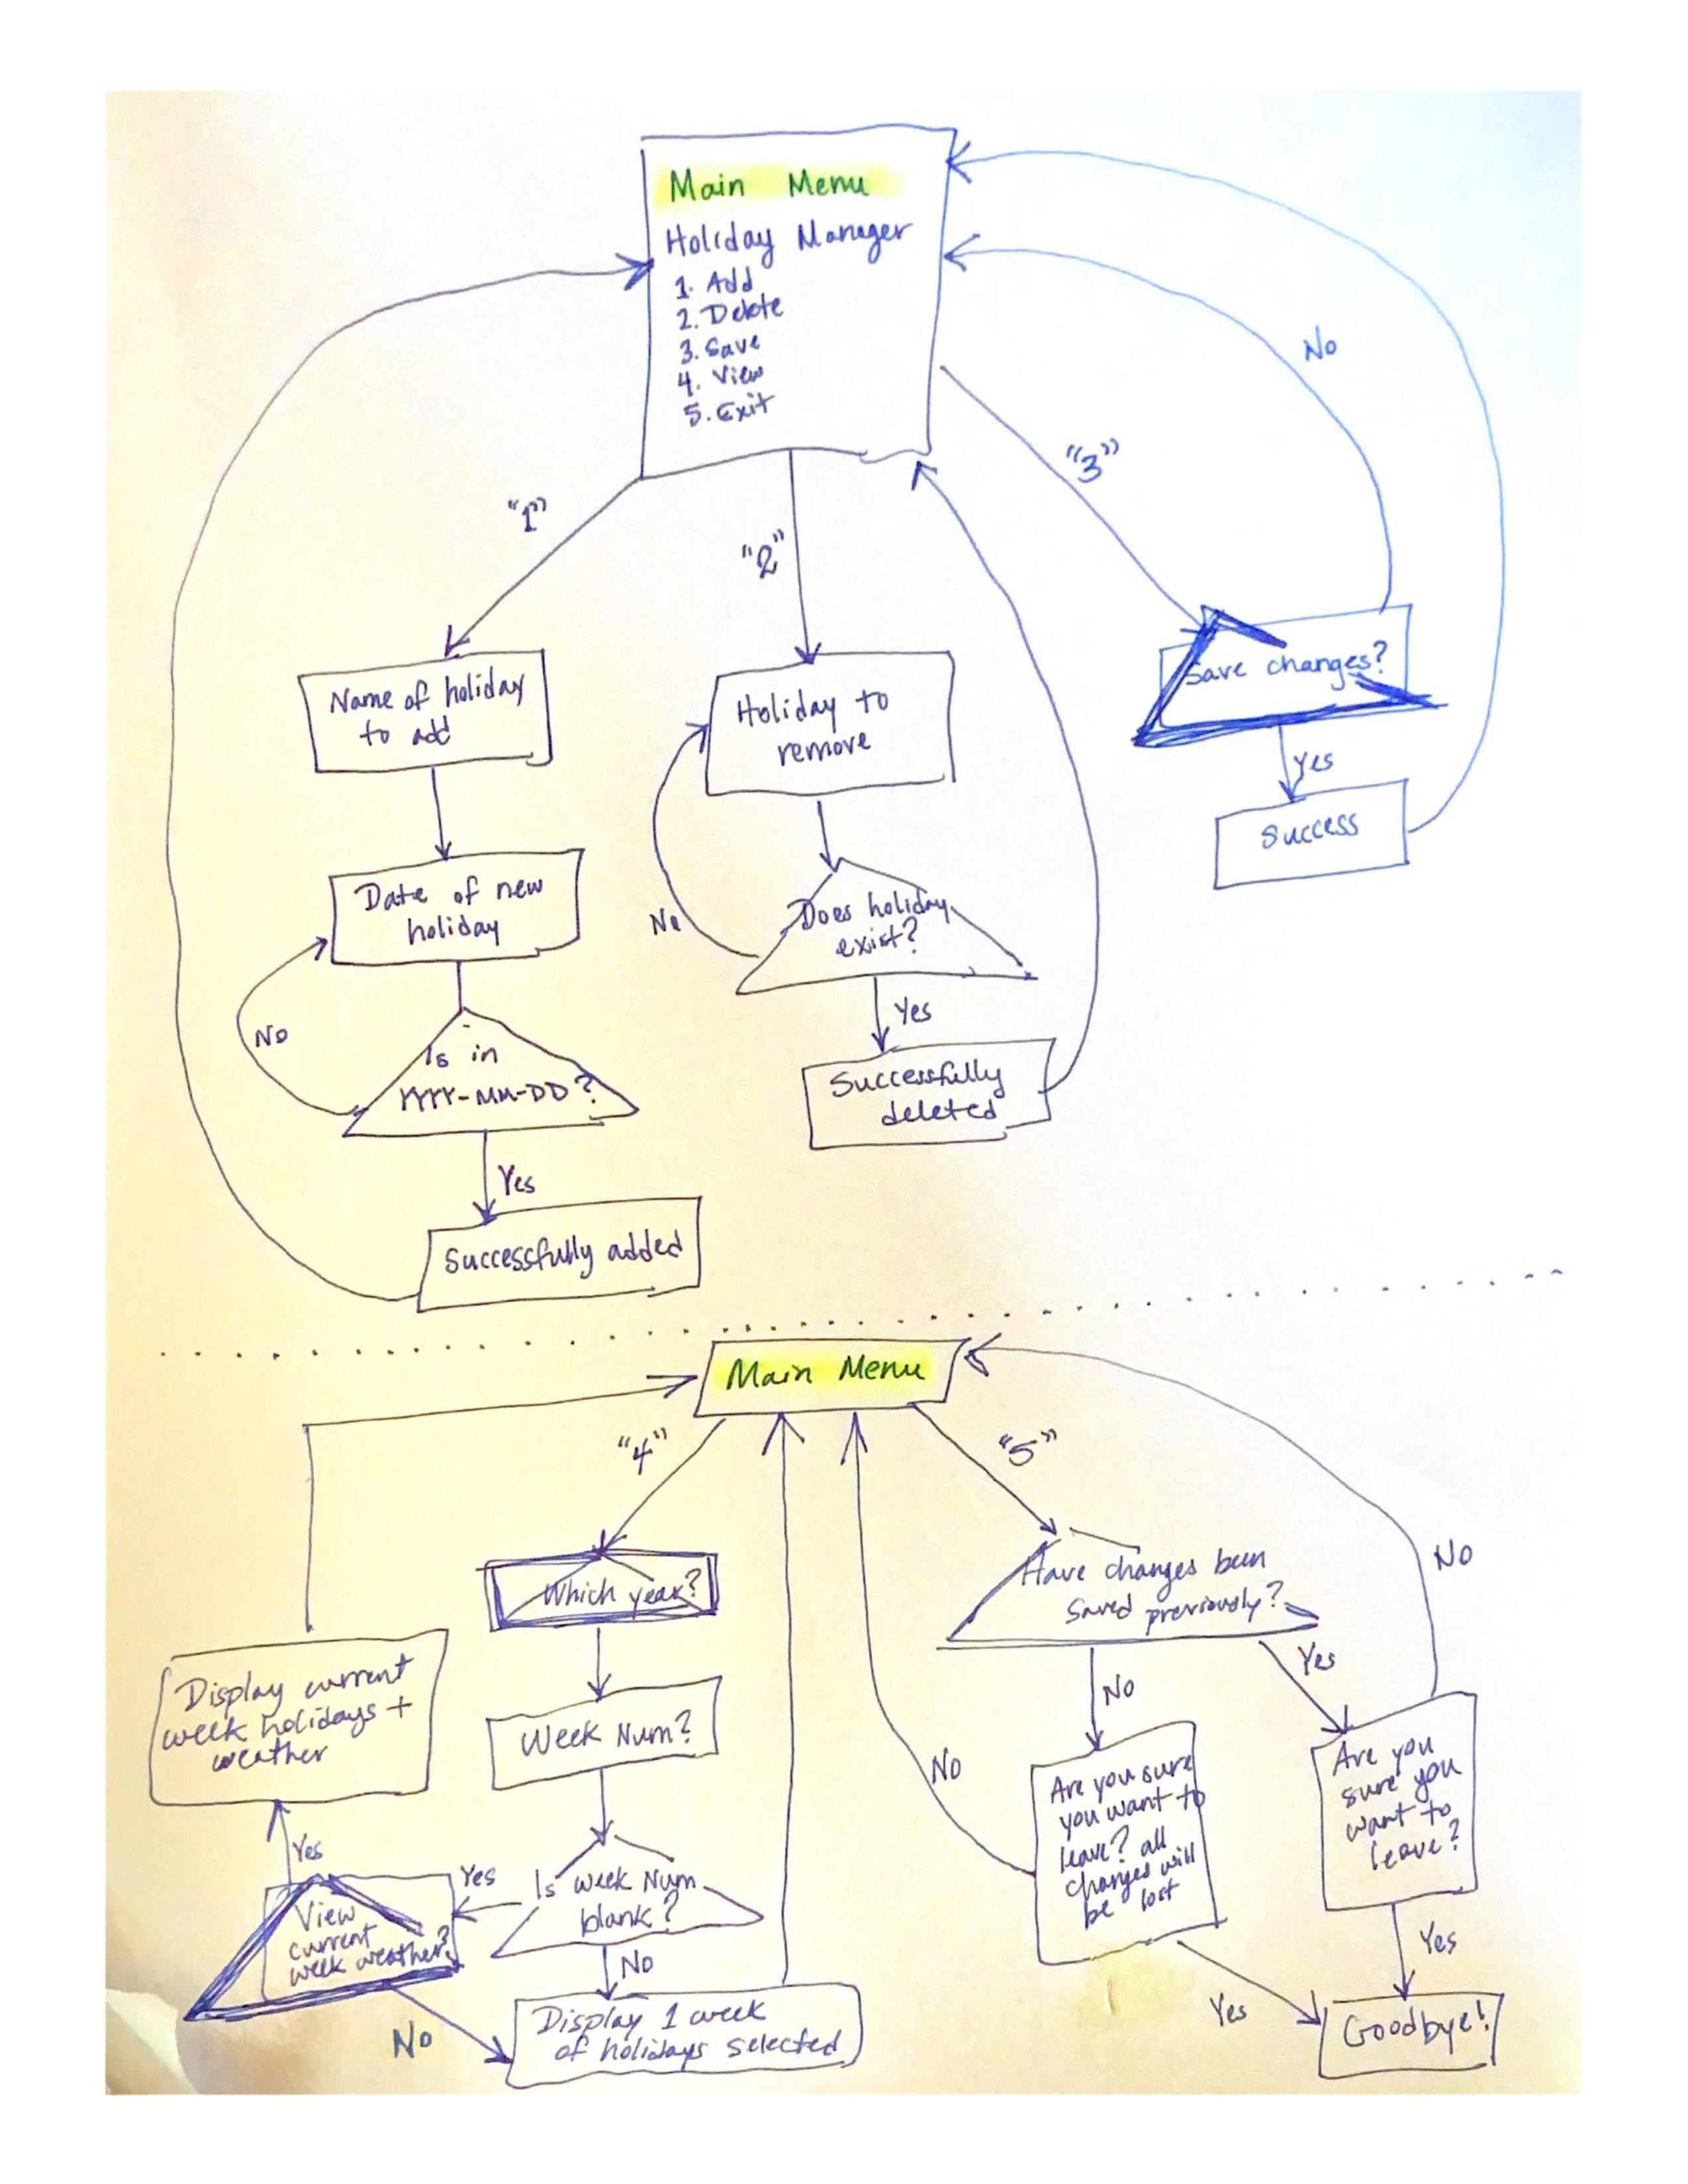 Main Menu
Holiday Manager
1. Add
2. Delete
3. Save
4. View
5. Exit
"1"
"2"
"3"
No
Name of holiday
to add
Date of new
holiday
No
Is in
YYYY-MM-DD?
Yes
Successfully added
Holiday to
remove
No
Does holiday
exist?
Yes
Successfully
deleted
Save changes?
Yes
Success
Main Menu
"4"
"5"
Which year?
Week Num?
Is week Num
blank?
Yes
No
View
current
week weather?
Yes
No
Display current
week holidays +
weather
Display 1 week
of holidays selected
Have changes been
saved previously?
No
Yes
No
No
Are you sure
you want to
leave? all
changes will
be lost
Yes
Are you
sure you
want to
leave?
Yes
Goodbye!